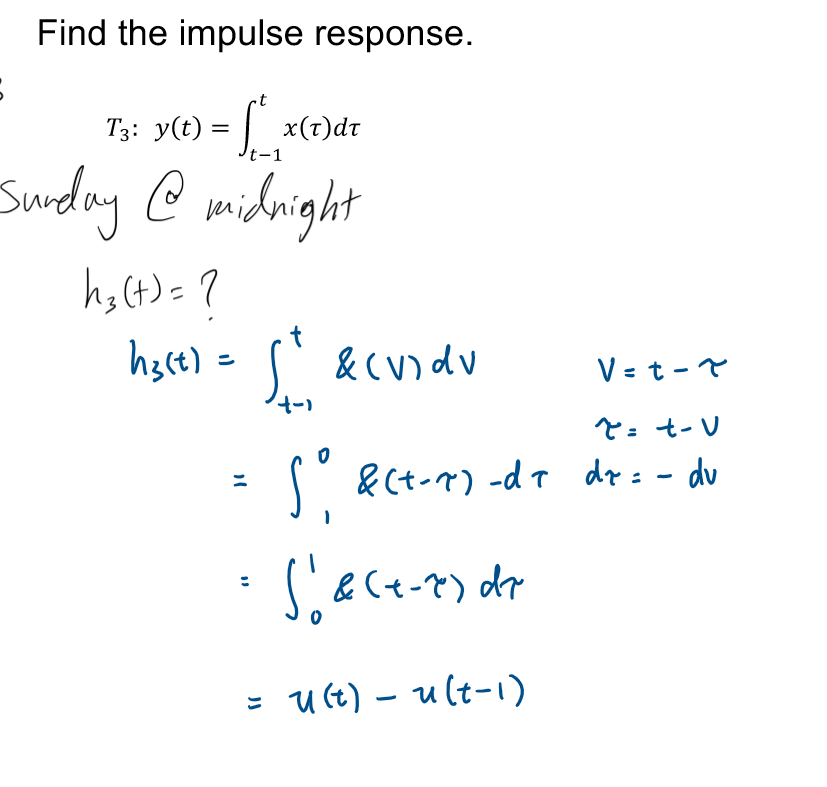 Find the impulse response.
T₃: y(t) = ∫_{t−1}^{t} x(τ)dτ
Sunday @ midnight
h₃(t) = ?
h₃(t) = ∫_{t-1}^{t} &(v) dv    v = t - τ
τ = t - v
= ∫_{1}^{0} &(t-τ) -dτ    dτ = - dv
= ∫_{0}^{1} &(t-τ) dτ
= u(t) - u(t-1)